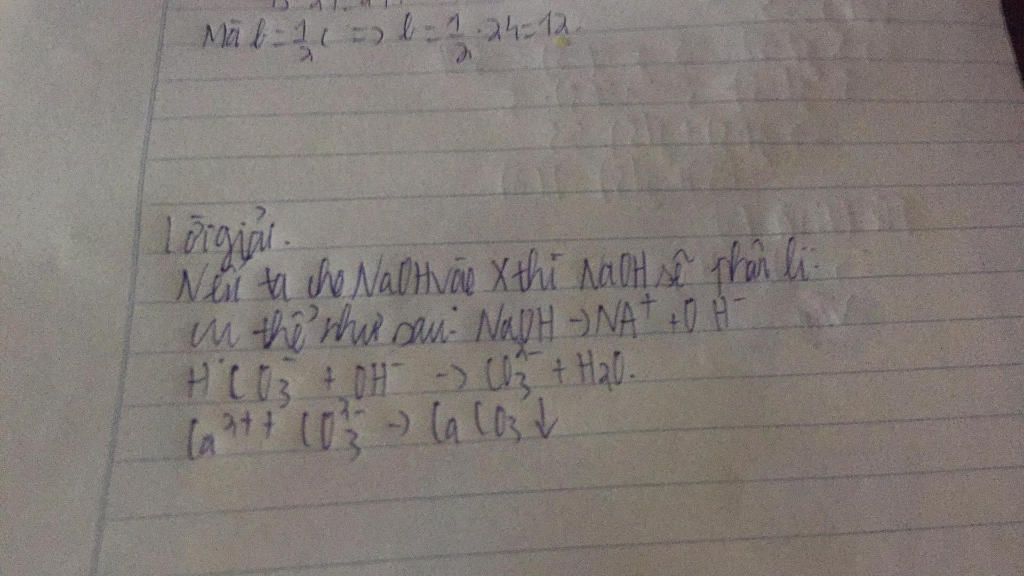 Mà l = 1/2 ( => l = 1/2 . 24 = 12.
Lời giải.
Nếu ta cho NaOH vào X thì NaOH sẽ phân li.
cụ thể như sau: NaOH → NA⁺ + OH⁻
HCO₃⁻ + OH⁻ → CO₃²⁻ + H₂O.
Ca²⁺ + CO₃²⁻ → CaCO₃ ↓